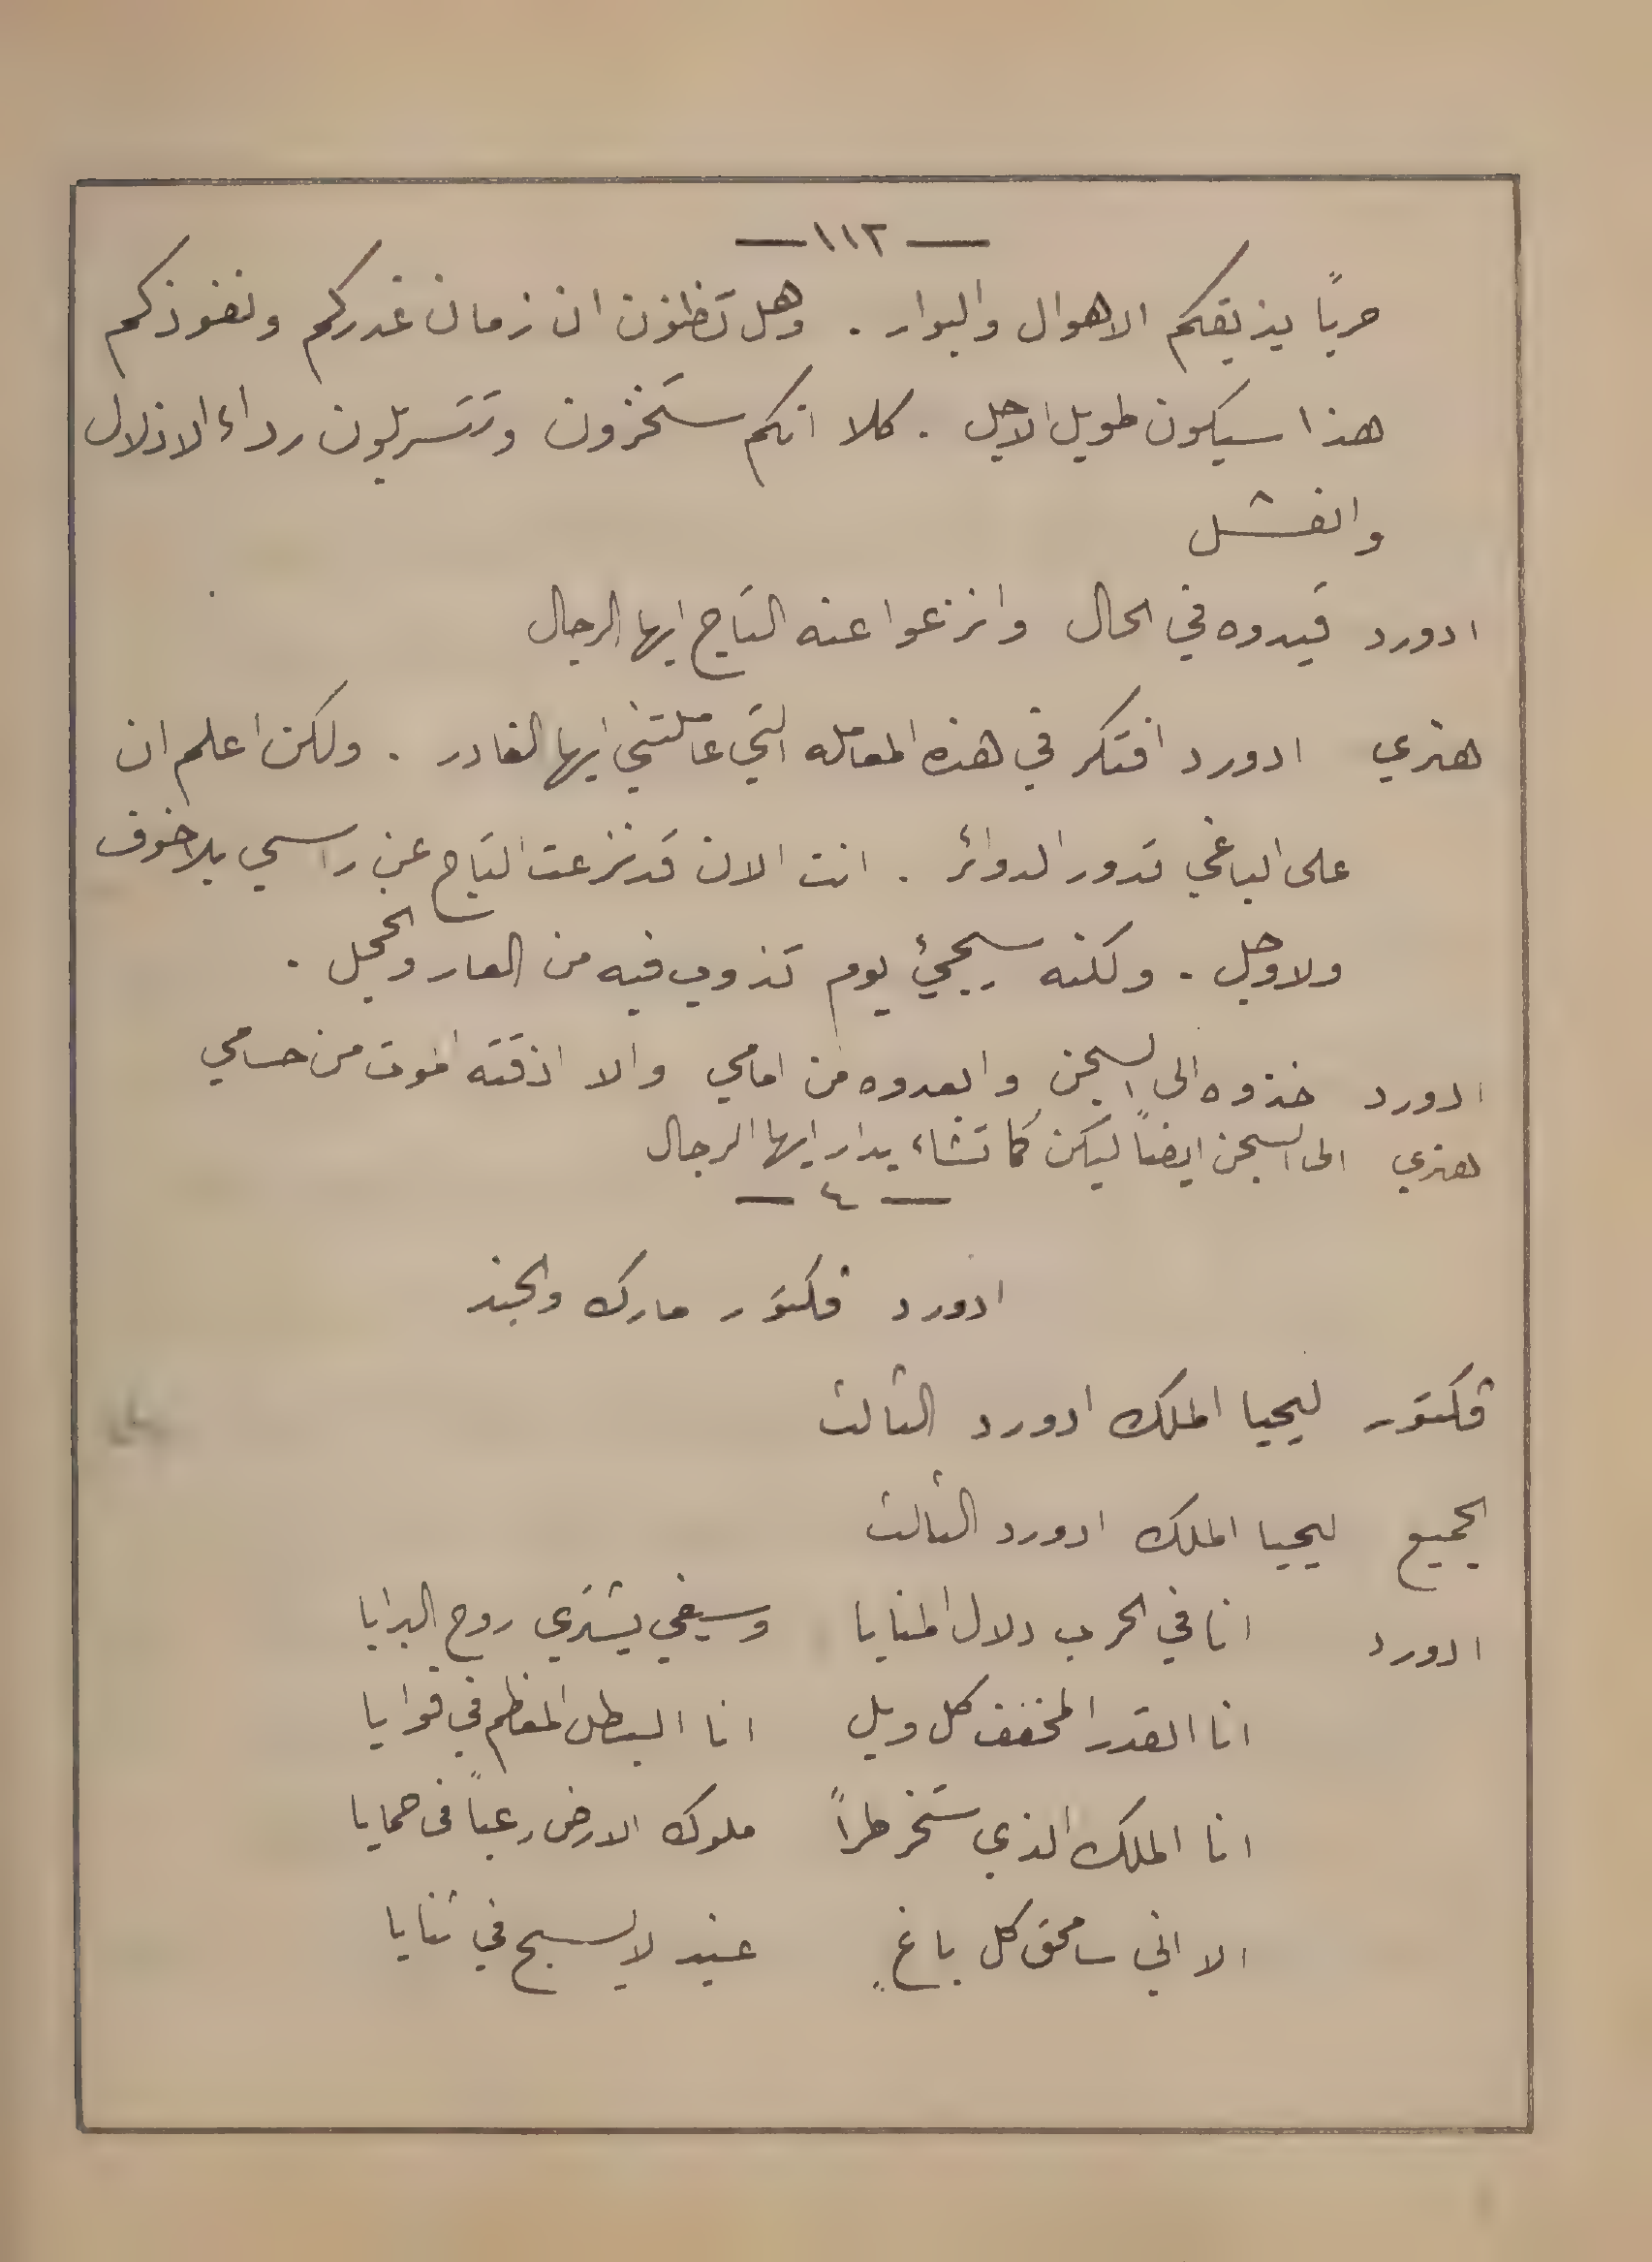 — ١١٢ —
حرباً يذيقكم الاهوال والبوار . وهل تظنون ان زمان غدركم ونفوذكم
هذا سيكون طويل الاجل . كلا انكم ستخزون وتتسربلون رداء الاذلال
والفشل
ادورد قيدوه في الحال وانزعوا عنه التاج ايها الرجال
هنري ادورد افتكر في هذه المعامله التي عاملتني ايها الغادر . ولكن اعلم ان
على الباغي تدور الدوائر . انت الان قد نزعت التاج عن راسي بلا خوف
ولا وجل . ولكنه سيجيئ يوم تذوب فيه من العار والخجل .
ادورد خذوه الى السجن وابعدوه من امامي والا اذقته الموت من حسامي
هنري الى السجن ايضاً ليكن كما تشاء بدار ايها الرجال
— ٤ —
ادورد فكتور مارك والجند
فكتور ليحيا الملك ادورد الثالث
الجميع ليحيا الملك ادورد الثالث
ادورد انا في الحرب دلال المنايا وسيفي يشتري روح البرايا
انا القدر المخفف كل ويل انا البطل المعظم في قوايا
انا الملك الذي ستخر طراً ملوك الارض رعباً في حمايا
الا اني سامحق كل باغٍ عنيد لا يسبح في ثنايا